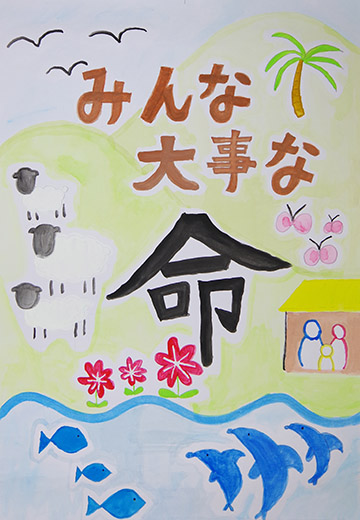 みんな
大事な
命